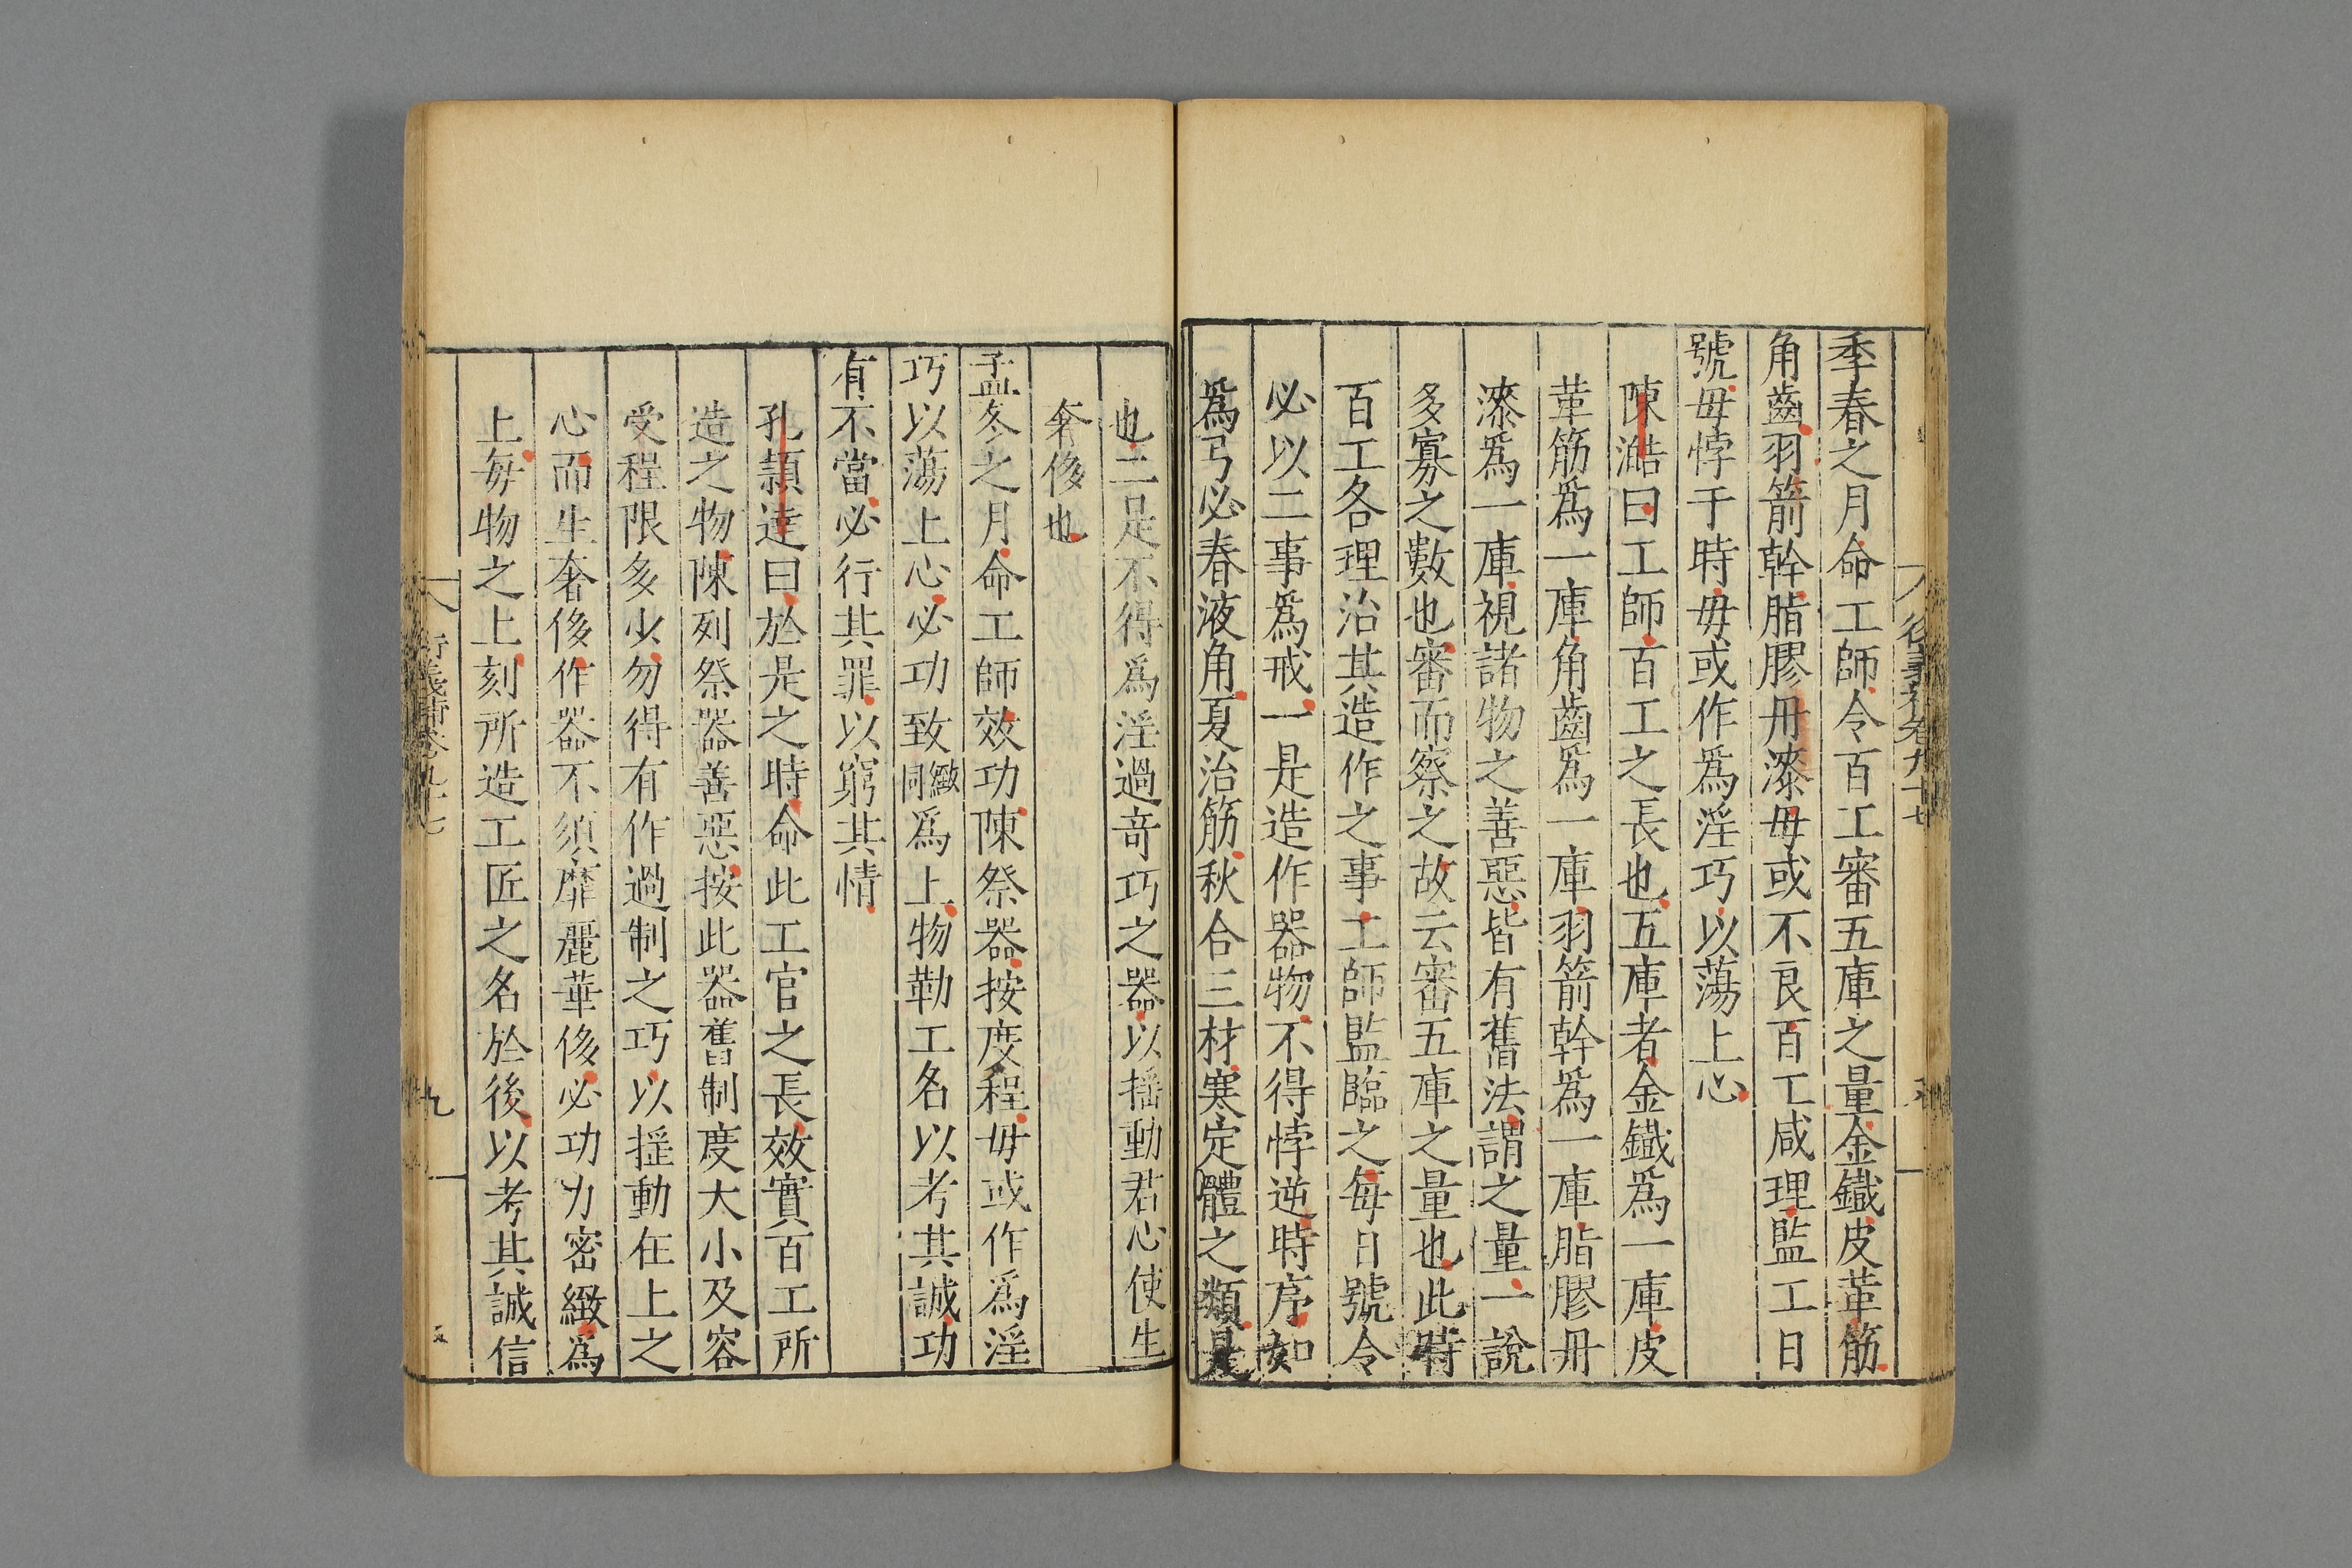 季春之月命工師令百工審五庫之量金鐵皮革筋
角齒羽箭幹脂膠丹漆毋或不良百工咸理監工日
號毋悖于時毋或作爲淫巧以蕩上心
陳澔曰工師百工之長也五庫者金鐵爲一庫皮
革筋爲一庫角齒爲一庫羽箭幹爲一庫脂膠丹
漆爲一庫視諸物之善惡皆有舊法謂之量一說
多寡之數也審而察之故云審五庫之量也此時
百工各理治其造作之事工師監臨之每日號令
必以二事爲戒一是造作器物不得悖逆時序如
爲弓必春液角夏治筋秋合三材寒定體之類是
也二是不得爲淫過奇巧之器以揺動君心使生
奢侈也
孟冬之月命工師效功陳祭器按度程毋或作爲淫
巧以蕩上心必功致緻同爲上物勒工名以考其誠功
有不當必行其罪以窮其情
孔頴達曰於是之時命此工官之長效實百工所
造之物陳列祭器善惡按此器舊制度大小及容
受程限多少勿得有作過制之巧以揺動在上之
心而生奢侈作器不須靡麗華侈必功力密緻爲
上每物之上刻所造工匠之名於後以考其誠信
九
五